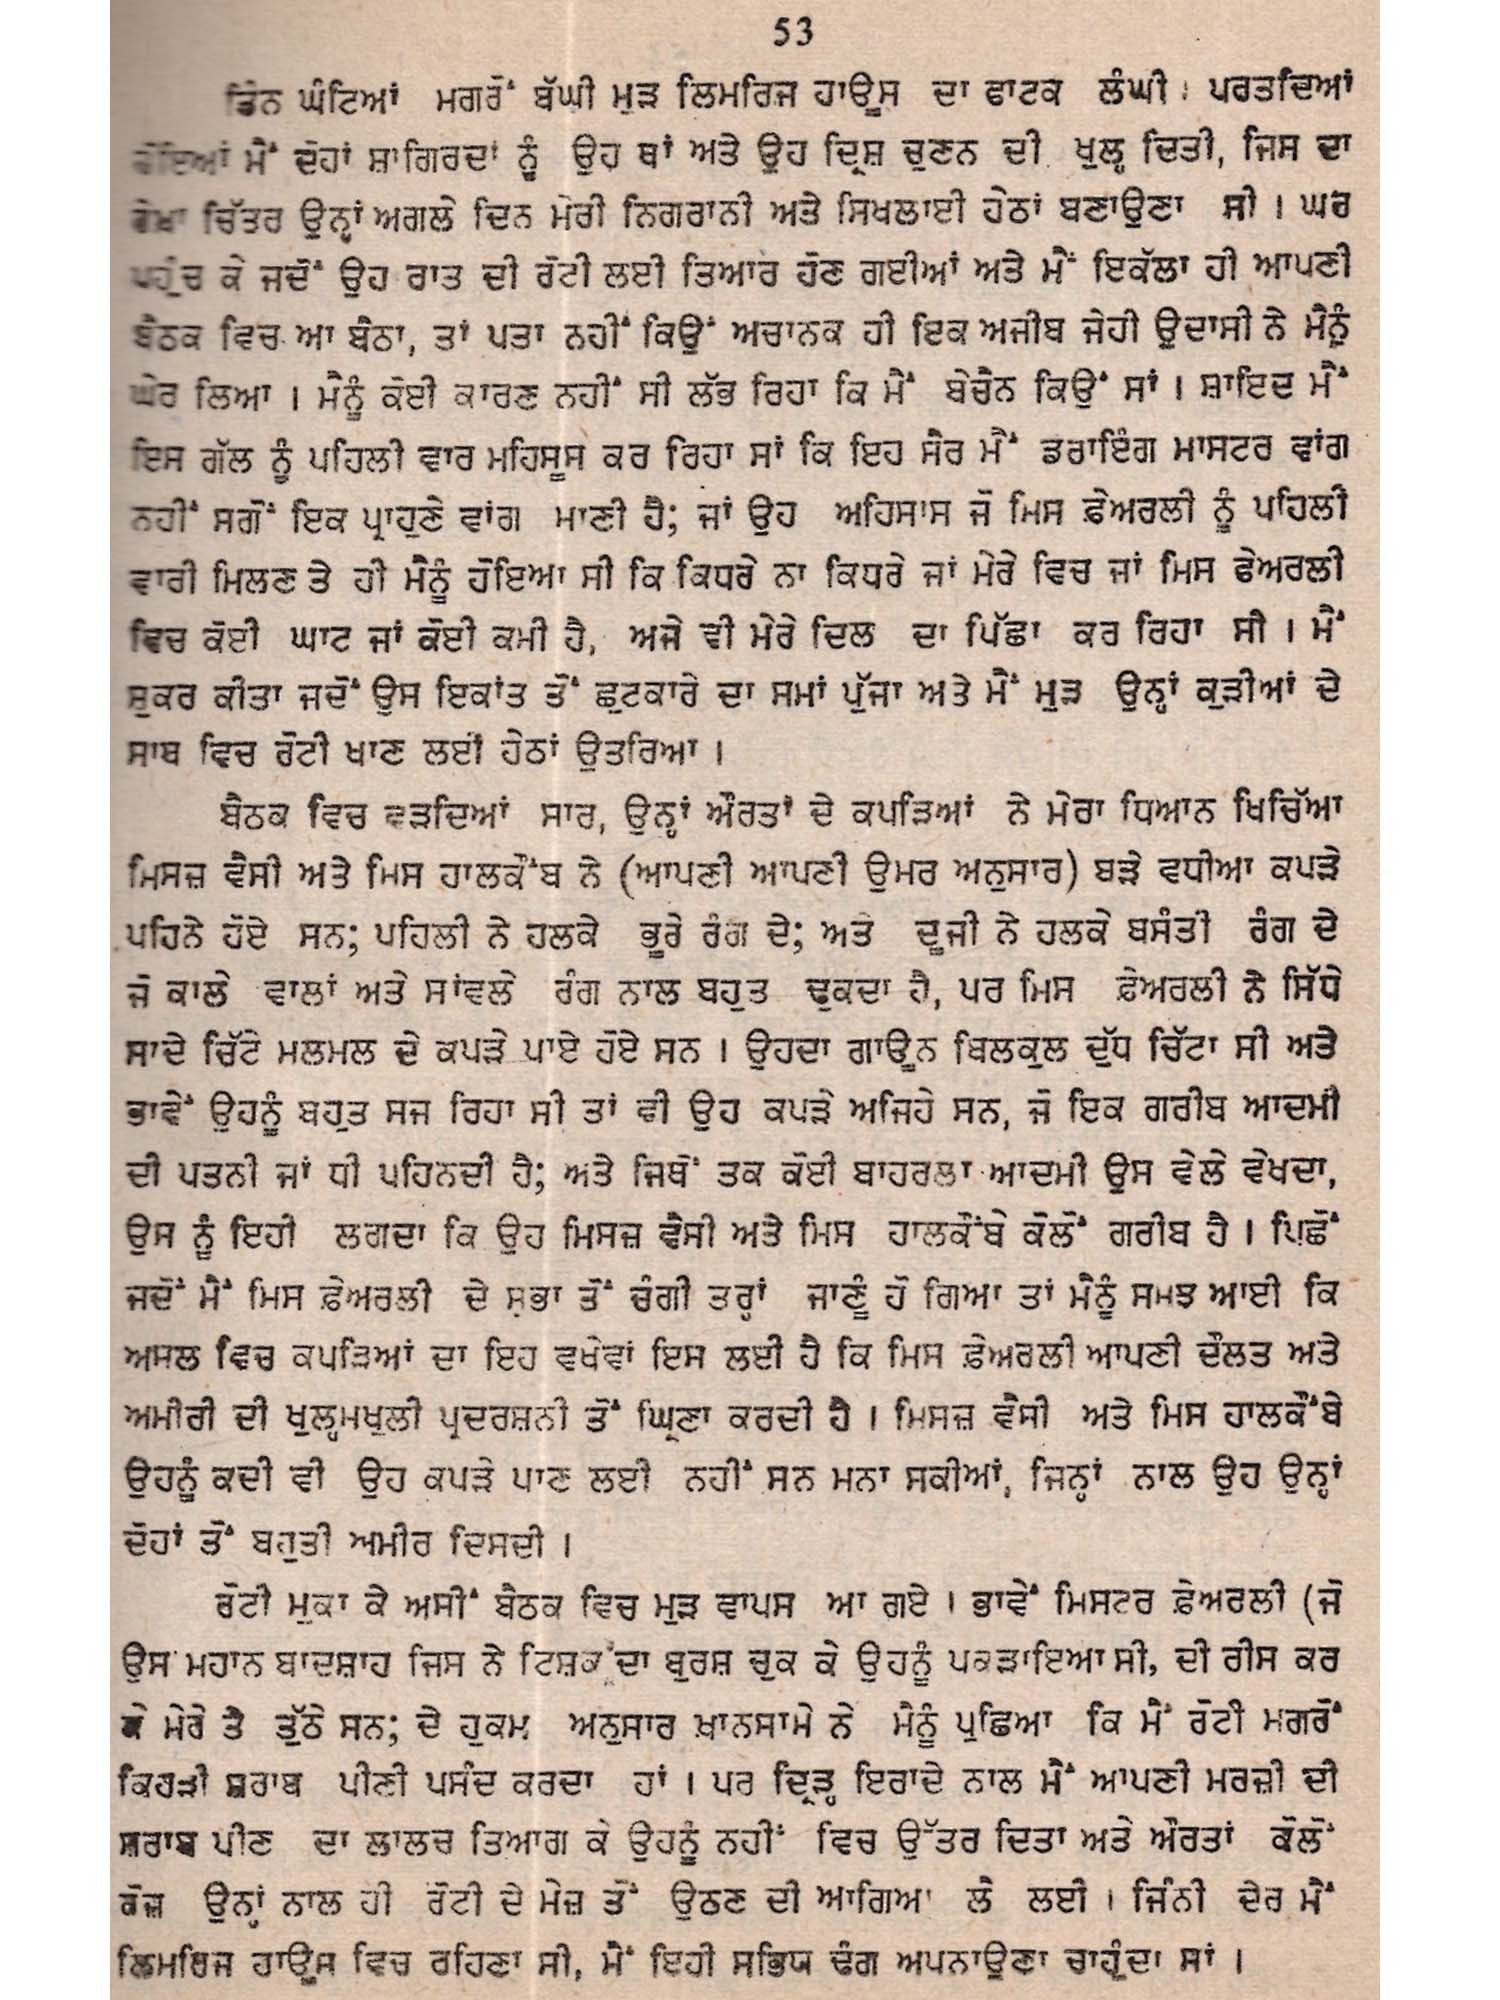 53
ਤਿੰਨ ਘੰਟਿਆਂ ਮਗਰੋਂ ਬੱਘੀ ਮੁੜ ਲਿਮਰਿਜ ਹਾਊਸ ਦਾ ਫਾਟਕ ਲੰਘੀ। ਪਰਤਦਿਆਂ
ਹੋਇਆਂ ਮੈਂ ਦੋਹਾਂ ਸ਼ਾਗਿਰਦਾਂ ਨੂੰ ਉਹ ਥਾਂ ਅਤੇ ਉਹ ਦ੍ਰਿਸ਼ ਚੁਣਨ ਦੀ ਖੁਲ੍ਹ ਦਿਤੀ, ਜਿਸ ਦਾ
ਰੇਖਾ ਚਿੱਤਰ ਉਨ੍ਹਾਂ ਅਗਲੇ ਦਿਨ ਮੇਰੀ ਨਿਗਰਾਨੀ ਅਤੇ ਸਿਖਲਾਈ ਹੇਠਾਂ ਬਣਾਉਣਾ ਸੀ। ਘਰ
ਪਹੁੰਚ ਕੇ ਜਦੋਂ ਉਹ ਰਾਤ ਦੀ ਰੋਟੀ ਲਈ ਤਿਆਰ ਹੋਣ ਗਈਆਂ ਅਤੇ ਮੈਂ ਇਕੱਲਾ ਹੀ ਆਪਣੀ
ਬੈਠਕ ਵਿਚ ਆ ਬੈਠਾ, ਤਾਂ ਪਤਾ ਨਹੀਂ ਕਿਉਂ ਅਚਾਨਕ ਹੀ ਇਕ ਅਜੀਬ ਜੇਹੀ ਉਦਾਸੀ ਨੇ ਮੈਨੂੰ
ਘੇਰ ਲਿਆ। ਮੈਨੂੰ ਕੋਈ ਕਾਰਣ ਨਹੀਂ ਸੀ ਲੱਭ ਰਿਹਾ ਕਿ ਮੈਂ ਬੇਚੈਨ ਕਿਉਂ ਸਾਂ। ਸ਼ਾਇਦ ਮੈਂ
ਇਸ ਗੱਲ ਨੂੰ ਪਹਿਲੀ ਵਾਰ ਮਹਿਸੂਸ ਕਰ ਰਿਹਾ ਸਾਂ ਕਿ ਇਹ ਸੈਰ ਮੈਂ ਡਰਾਇੰਗ ਮਾਸਟਰ ਵਾਂਗ
ਨਹੀਂ ਸਗੋਂ ਇਕ ਪ੍ਰਾਹੁਣੇ ਵਾਂਗ ਮਾਣੀ ਹੈ; ਜਾਂ ਉਹ ਅਹਿਸਾਸ ਜੋ ਮਿਸ ਫ਼ੇਅਰਲੀ ਨੂੰ ਪਹਿਲੀ
ਵਾਰੀ ਮਿਲਣ ਤੇ ਹੀ ਮੈਨੂੰ ਹੋਇਆ ਸੀ ਕਿ ਕਿਧਰੇ ਨਾ ਕਿਧਰੇ ਜਾਂ ਮੇਰੇ ਵਿਚ ਜਾਂ ਮਿਸ ਫੇਅਰਲੀ
ਵਿਚ ਕੋਈ ਘਾਟ ਜਾਂ ਕੋਈ ਕਮੀ ਹੈ, ਅਜੇ ਵੀ ਮੇਰੇ ਦਿਲ ਦਾ ਪਿੱਛਾ ਕਰ ਰਿਹਾ ਸੀ। ਮੈਂ
ਸ਼ੁਕਰ ਕੀਤਾ ਜਦੋਂ ਉਸ ਇਕਾਂਤ ਤੋਂ ਛੁਟਕਾਰੇ ਦਾ ਸਮਾਂ ਪੁੱਜਾ ਅਤੇ ਮੈਂ ਮੁੜ ਉਨ੍ਹਾਂ ਕੁੜੀਆਂ ਦੇ
ਸਾਥ ਵਿਚ ਰੋਟੀ ਖਾਣ ਲਈ ਹੇਠਾਂ ਉਤਰਿਆ।
ਬੈਠਕ ਵਿਚ ਵੜਦਿਆਂ ਸਾਰ, ਉਨ੍ਹਾਂ ਔਰਤਾਂ ਦੇ ਕਪੜਿਆਂ ਨੇ ਮੇਰਾ ਧਿਆਨ ਖਿਚਿੱਆ
ਮਿਸਜ਼ ਵੈਸੀ ਅਤੇ ਮਿਸ ਹਾਲਕੌਂਬ ਨੇ (ਆਪਣੀ ਆਪਣੀ ਉਮਰ ਅਨੁਸਾਰ) ਬੜੇ ਵਧੀਆ ਕਪੜੇ
ਪਹਿਨੇ ਹੋਏ ਸਨ; ਪਹਿਲੀ ਨੇ ਹਲਕੇ ਭੂਰੇ ਰੰਗ ਦੇ; ਅਤੇ ਦੂਜੀ ਨੇ ਹਲਕੇ ਬਸੰਤੀ ਰੰਗ ਦੇ
ਜੋ ਕਾਲੇ ਵਾਲਾਂ ਅਤੇ ਸਾਂਵਲੇ ਰੰਗ ਨਾਲ ਬਹੁਤ ਢੁਕਦਾ ਹੈ, ਪਰ ਮਿਸ ਫ਼ੇਅਰਲੀ ਨੇ ਸਿੱਧੇ
ਸਾਦੇ ਚਿੱਟੇ ਮਲਮਲ ਦੇ ਕਪੜੇ ਪਾਏ ਹੋਏ ਸਨ। ਉਹਦਾ ਗਾਊਨ ਬਿਲਕੁਲ ਦੁੱਧ ਚਿੱਟਾ ਸੀ ਅਤੇ
ਭਾਵੇਂ ਉਹਨੂੰ ਬਹੁਤ ਸਜ ਰਿਹਾ ਸੀ ਤਾਂ ਵੀ ਉਹ ਕਪੜੇ ਅਜਿਹੇ ਸਨ, ਜੋ ਇਕ ਗਰੀਬ ਆਦਮੀ
ਦੀ ਪਤਨੀ ਜਾਂ ਧੀ ਪਹਿਨਦੀ ਹੈ; ਅਤੇ ਜਿਥੋਂ ਤਕ ਕੋਈ ਬਾਹਰਲਾ ਆਦਮੀ ਉਸ ਵੇਲੇ ਵੇਖਦਾ,
ਉਸ ਨੂੰ ਇਹੀ ਲਗਦਾ ਕਿ ਉਹ ਮਿਸਜ਼ ਵੈਸੀ ਅਤੇ ਮਿਸ ਹਾਲਕੌਂਬੇ ਕੋਲੋਂ ਗਰੀਬ ਹੈ। ਪਿਛੋਂ
ਜਦੋਂ ਮੈਂ ਮਿਸ ਫ਼ੇਅਰਲੀ ਦੇ ਸੁਭਾ ਤੋਂ ਚੰਗੀ ਤਰ੍ਹਾਂ ਜਾਣੂੰ ਹੋ ਗਿਆ ਤਾਂ ਮੈਨੂੰ ਸਮਝ ਆਈ ਕਿ
ਅਸਲ ਵਿਚ ਕਪੜਿਆਂ ਦਾ ਇਹ ਵਖੇਵਾਂ ਇਸ ਲਈ ਹੈ ਕਿ ਮਿਸ ਫ਼ੇਅਰਲੀ ਆਪਣੀ ਦੌਲਤ ਅਤੇ
ਅਮੀਰੀ ਦੀ ਖੁਲ੍ਹਮਖੁਲੀ ਪ੍ਰਦਰਸ਼ਨੀ ਤੋਂ ਘ੍ਰਿਣਾ ਕਰਦੀ ਹੈ। ਮਿਸਜ਼ ਵੈਸੀ ਅਤੇ ਮਿਸ ਹਾਲਕੌਂਬੇ
ਉਹਨੂੰ ਕਦੀ ਵੀ ਉਹ ਕਪੜੇ ਪਾਣ ਲਈ ਨਹੀਂ ਸਨ ਮਨਾ ਸਕੀਆਂ, ਜਿਨ੍ਹਾਂ ਨਾਲ ਉਹ ਉਨ੍ਹਾਂ
ਦੋਹਾਂ ਤੋਂ ਬਹੁਤੀ ਅਮੀਰ ਦਿਸਦੀ।
ਰੋਟੀ ਮੁਕਾ ਕੇ ਅਸੀਂ ਬੈਠਕ ਵਿਚ ਮੁੜ ਵਾਪਸ ਆ ਗਏ। ਭਾਵੇਂ ਮਿਸਟਰ ਫ਼ੇਅਰਲੀ (ਜੋ
ਉਸ ਮਹਾਨ ਬਾਦਸ਼ਾਹ ਜਿਸ ਨੇ ਦਾ ਬੁਰਸ਼ ਚੁਕ ਕੇ ਉਹਨੂੰ ਪਕੜਾਇਆ ਸੀ, ਦੀ ਰੀਸ ਕਰ
ਕੇ ਮੇਰੇ ਤੇ ਤੁੱਠੇ ਸਨ; ਦੇ ਹੁਕਮ ਅਨੁਸਾਰ ਖ਼ਾਨਸਾਮੇ ਨੇ ਮੈਨੂੰ ਪੁਛਿਆ ਕਿ ਮੈਂ ਰੋਟੀ ਮਗਰੋਂ
ਕਿਹੜੀ ਸ਼ਰਾਬ ਪੀਣੀ ਪਸੰਦ ਕਰਦਾ ਹਾਂ। ਪਰ ਦ੍ਰਿੜ੍ਹ ਇਰਾਦੇ ਨਾਲ ਮੈਂ ਆਪਣੀ ਮਰਜ਼ੀ ਦੀ
ਸ਼ਰਾਬ ਪੀਣ ਦਾ ਲਾਲਚ ਤਿਆਗ ਕੇ ਉਹਨੂੰ ਨਹੀਂ ਵਿਚ ਉੱਤਰ ਦਿਤਾ ਅਤੇ ਔਰਤਾਂ ਕੋਲੋਂ
ਰੋਜ਼ ਉਨ੍ਹਾਂ ਨਾਲ ਹੀ ਰੋਟੀ ਦੇ ਮੇਜ਼ ਤੋਂ ਉਠਣ ਦੀ ਆਗਿਆ ਲੈ ਲਈ। ਜਿੰਨੀ ਦੇਰ ਮੈਂ
ਲਿਮਰਿਜ ਹਾਊਸ ਵਿਚ ਰਹਿਣਾ ਸੀ, ਮੈਂ ਇਹੀ ਸਭਿਯ ਢੰਗ ਅਪਨਾਉਣਾ ਚਾਹੁੰਦਾ ਸਾਂ।